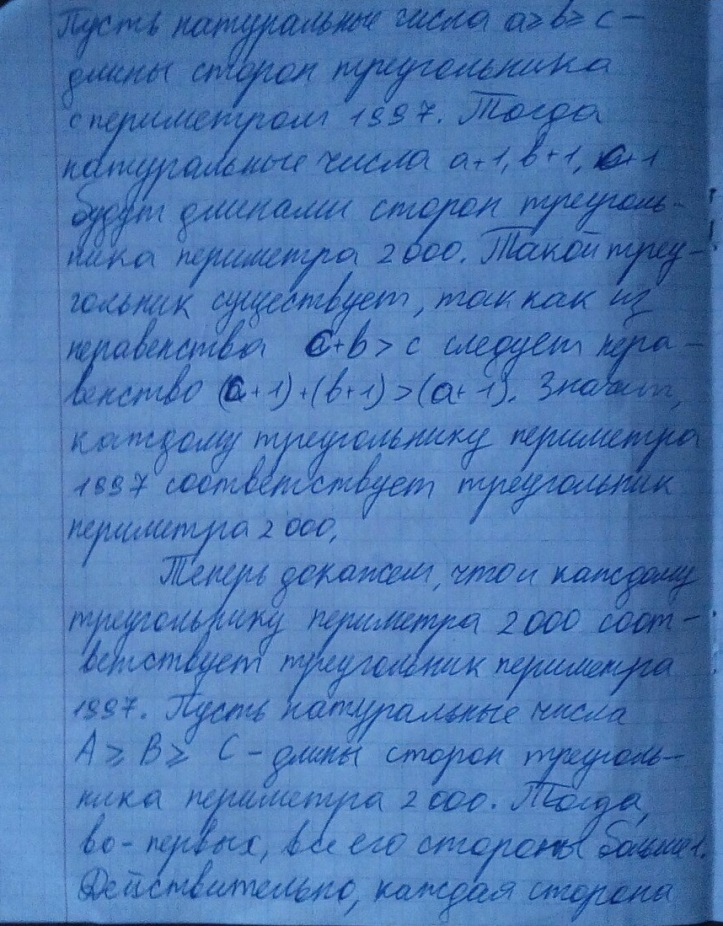 Пусть натуральные числа a ≥ b ≥ c –
длины сторон треугольника
с периметром 1997. Тогда
натуральные числа a+1, b+1, c+1
будут длинами сторон треуголь-
ника периметра 2000. Такой треу-
гольник существует, так как из
неравенства c+b > c следует нера-
венство (c+1)+(b+1)>(a+1). Значит,
каждому треугольнику периметра
1997 соответствует треугольник
периметра 2000.
Теперь докажем, что и каждому
треугольнику периметра 2000 соот-
ветствует треугольник периметра
1997. Пусть натуральные числа
A ≥ B ≥ C – длины сторон треуголь-
ника периметра 2000. Тогда,
во-первых, все его стороны больше 1.
Действительно, каждая сторона